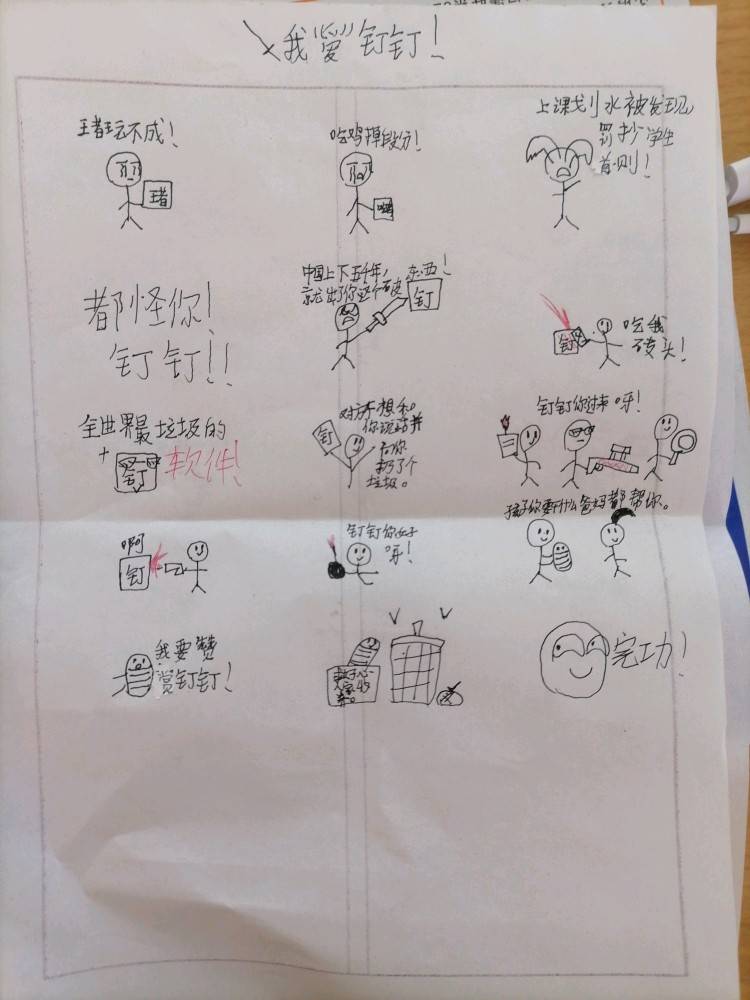 我“爱”钉钉！
王者玩不成！
王者
吃鸡掉段分！
吃鸡
上课划水被发现
罚抄学生
首则！
都怪你！
钉钉！！
中国上下五千年，
就出了你这个破东西！
钉
吃我
砖头！
钉
全世界最垃圾的
软件！
钉
钉
对方不想和
你说话并
向你
扔了个
垃圾。
钉钉你过来呀！
啊
钉
钉钉你好
呀！
孩子你要干什么爸妈都帮你。
我要赞
赏钉钉！
完功！